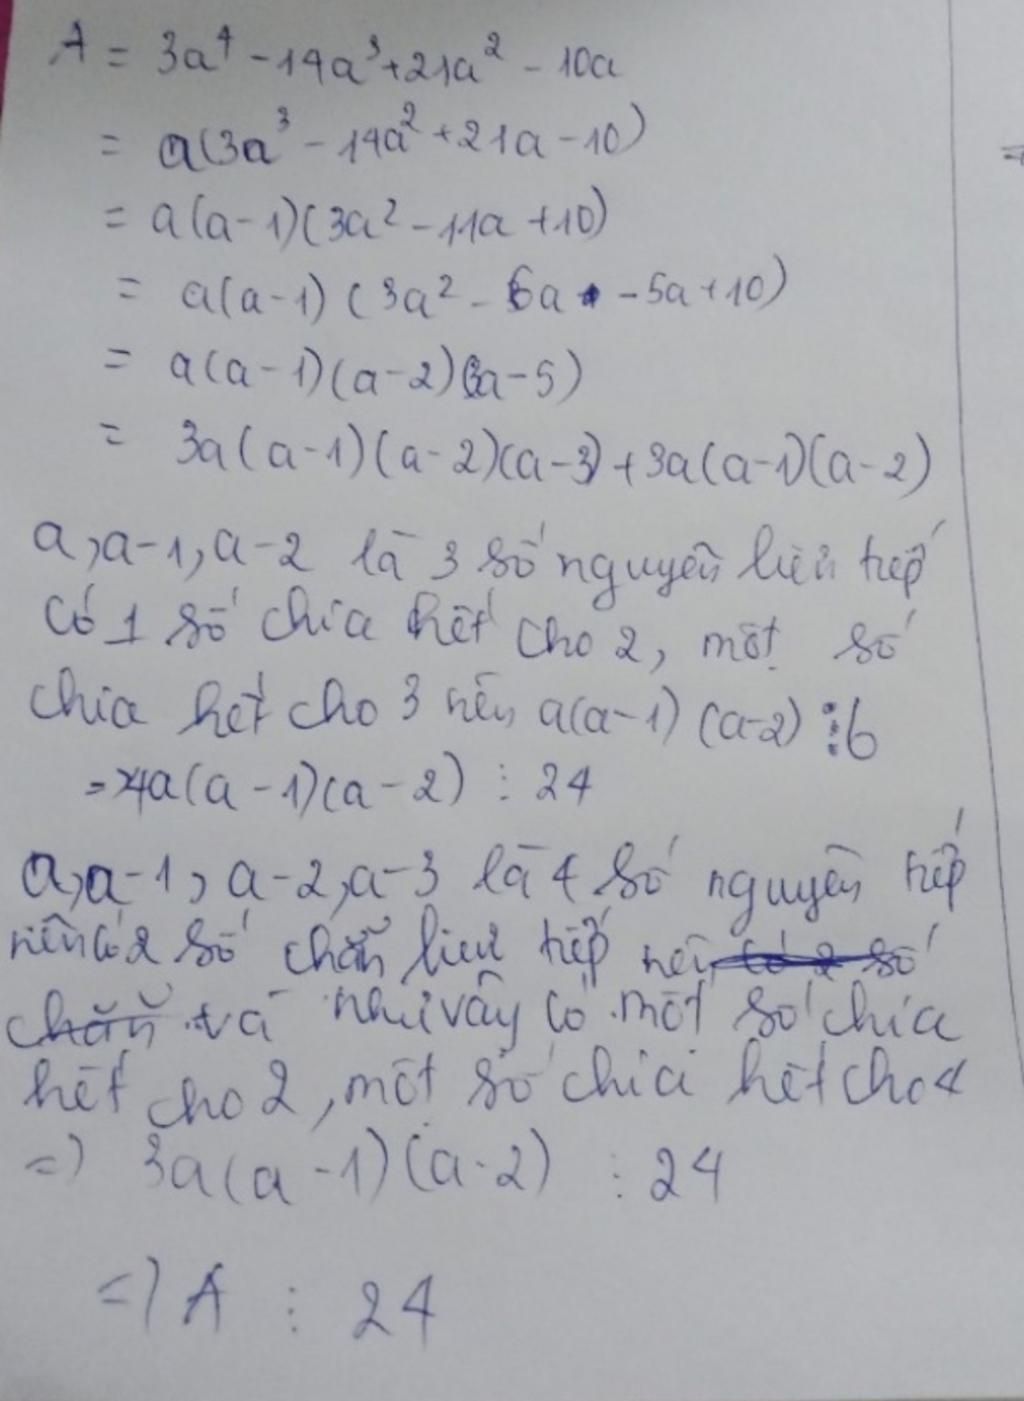 A = 3a⁴ - 14a³ + 21a² - 10a
= a(3a³ - 14a² + 21a - 10)
= a(a-1)(3a² - 11a + 10)
= a(a-1)(3a² - 6a - 5a + 10)
= a(a-1)(a-2)(3a-5)
= 3a(a-1)(a-2)(a-3) + 3a(a-1)(a-2)
a, a-1, a-2 là 3 số nguyên liên tiếp
có 1 số chia hết cho 2, một số
chia hết cho 3 nên a(a-1)(a-2) ⋮ 6
= 4a(a-1)(a-2) ⋮ 24
a, a-1, a-2, a-3 là 4 số nguyên tiếp
nên có 2 số chẵn liên tiếp nên có 2 số
chẵn và như vậy có một số chia
hết cho 2, một số chia hết cho 4
=) 3a(a-1)(a-2) ⋮ 24
=) A ⋮ 24